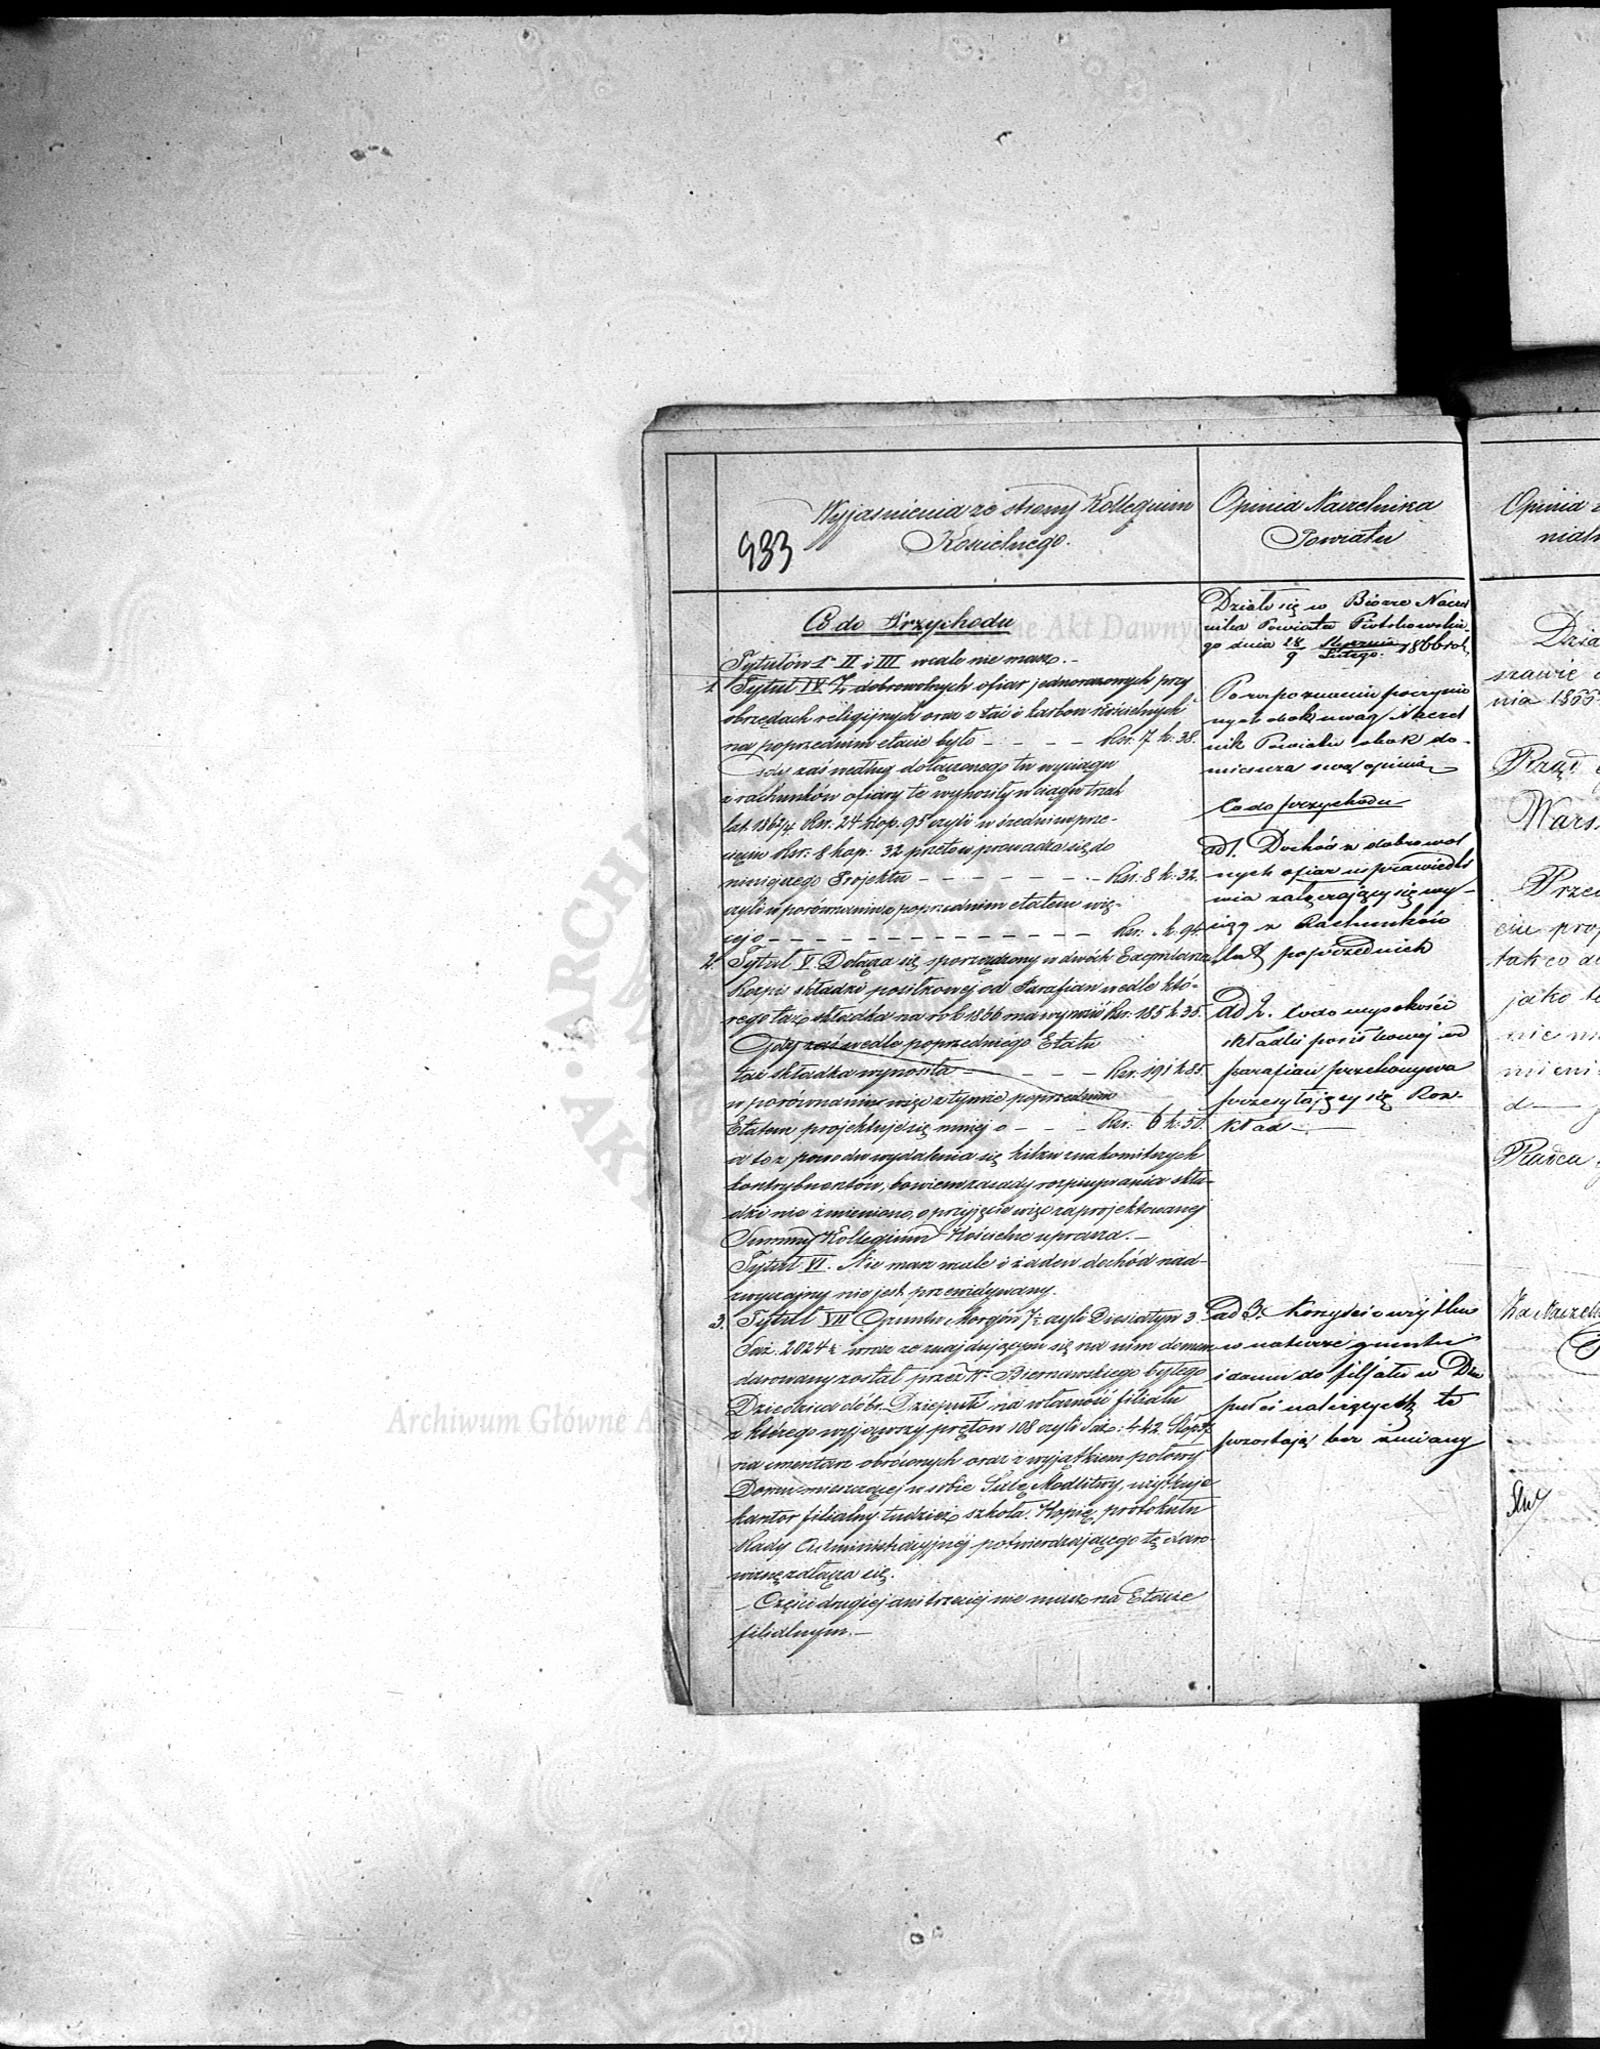 933
Wyjaśnienia ze strony Kollegium
Kościelnego.
Co do Przychodu
Tytułów I II i III wcale nie masz.-
1. Tytuł IV. Z dobrowolnych ofiar jednorazowych przy
obrzędach religijnych oraz z tac i karbon kościelnych
na poprzednim etacie było - - - - Rsr. 7 k. 38.
Gdy zaś według dołączonego tu wyciągu
z rachunków ofiary te wynosiły w ciągu trzech
lat 1862/4 Rsr. 24 kop. 95 czyli w średnim prze-
cięciu Rsr: 8 kop: 32 przeto wprowadza się do
niniejszego Projektu - - - - - - - Rsr: 8 k. 32.
czyli w porównaniu z poprzednim etatem wię-
cej o - - - - - - - - - - - - - - Rsr: . k. 94.
2. Tytuł V. Dołącza się sporządzony w dwóch Exemplarza
Rozpis składki posiłkowej od Parafian wedle któ-
rego taż składka na rok 1866 ma wynosić Rsr: 185 k. 35.
Gdy zaś wedle poprzedniego Etatu
taż składka wynosiła - - - - - Rsr: 191 k. 85.
w porównaniu więc z tymże poprzednim
Etatem projektuje się mniej o - - - Rsr: 6 k: 50.
a to z powodu wydalenia się kilku znakomitszych
kontrybuentów, bowiem zasady rozpisywania skła-
dki nie zmieniono, o przyjęcie więc zaprojektowanej
Summy Kollegium Kościelne uprasza.-
Tytuł VI. Nie masz wcale i żaden dochód nad-
zwyczajny nie jest przewidywany.
3. Tytuł VII Gruntu Morgów 7½ czyli Diesiatyn 3
Saż. 2024½ wraz ze znajdującym się na nim domem
darowany został przez W. Biernawskiego byłego
Dziedzica dóbr Dziepułć na własność filiału
z którego wyjąwszy prętów 108 czyli Saż: 442. Stóp 37
na cmentarz obróconych oraz z wyjątkiem połowy
Domu mieszczącej w sobie Salę Modlitwy, użytkuje
kantor filialny tudzież szkoła. Kopię protokułu
Rady Administracyjnej potwierdzającego tę daro-
wiznę załącza się.
Części drugiej ani trzeciej nie masz na Etacie
filialnym.-
Opinia Naczelnika
Powiatu
Działo się w Biórze Naczel
nika Powiatu Piotrkowskie
go dnia 28/9 Stycznia/Lutego 1866 rok
Po rozpoznaniu poczynio
nych obok uwag Naczel
nik Powiatu obok do-
mieszcza swą opinią
Co do przychodu
ad 1. Dochód z dobrowol
nych ofiar usprawiedli
wia załączający się wy-
ciąg z Rachunków
lat poprzednich
Ad 2. Co do wysokości
składki posiłkowej od
parafian przekonywa
przesyłający się Roz-
kład -
ad 3. Korzyści z użytku
w naturze gruntu
i domu do filjału w Dzie
pułci należących te
pozostają bez zmiany
Opinia
Dzia
szawie
nia 1866
Rząd
Wars
Przed
ciu proj
tak co do
jako te
nie m
mieni
d
Radca
Za Naczel
Archiwum Główne Akt Dawnych